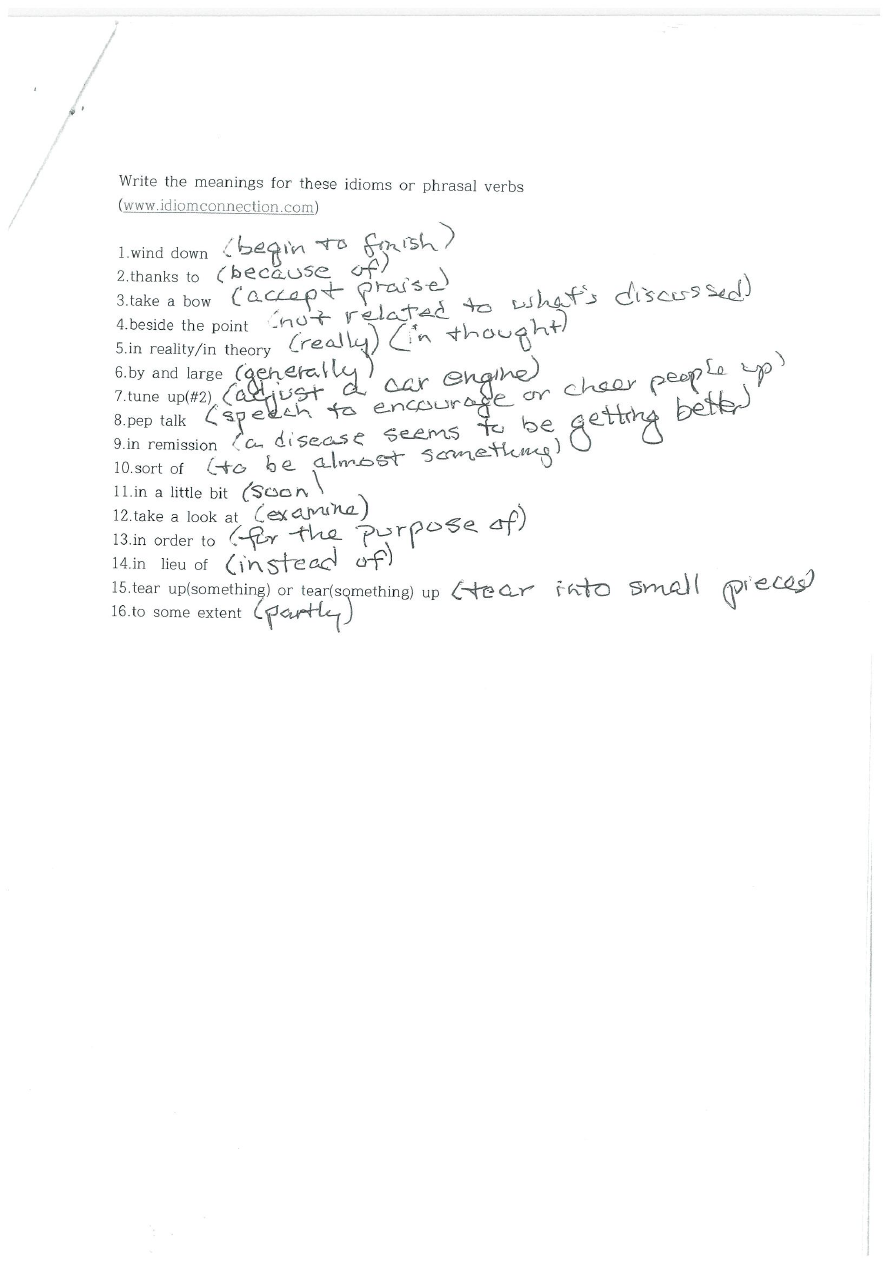 Write the meanings for these idioms or phrasal verbs
(www.idiomconnection.com)
1.wind down (begin to finish)
2.thanks to (because of)
3.take a bow (accept praise)
4.beside the point (not related to what's discussed)
5.in reality/in theory (really) (in thought)
6.by and large (generally)
7.tune up(#2) (adjust a car engine)
8.pep talk (speech to encourage or cheer people up)
9.in remission (a disease seems to be getting better)
10.sort of (to be almost something)
11.in a little bit (soon)
12.take a look at (examine)
13.in order to (for the purpose of)
14.in lieu of (instead of)
15.tear up(something) or tear(something) up (tear into small pieces)
16.to some extent (partly)